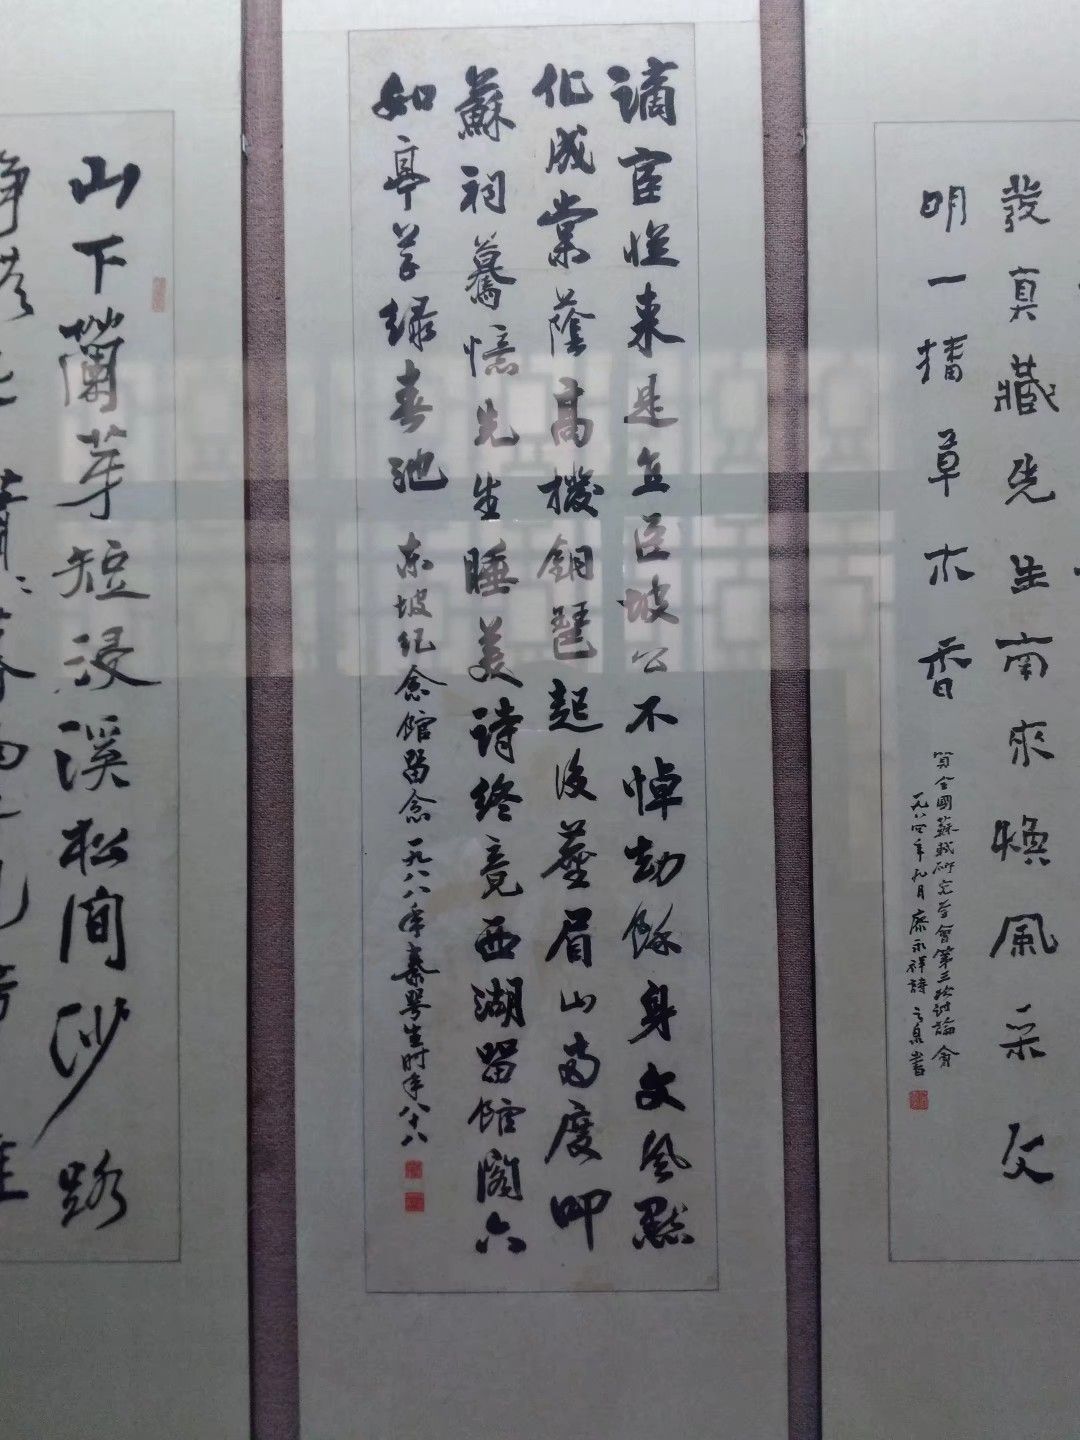 發真藏先生南來煥風采父
明一擂草木香
賀全國蘇軾研究學會第三次討論會
一九八四年九月廖永祥詩
謫宦從來是直臣坡公不悼劫餘身文風默
化成棠蔭高機銅琶起後塵眉山両度叩
蘇祠驀憶先生睡美诗终竟西湖留館阁六
如亭草绿春池
东坡纪念館留念一九八八年秦咢生时年八十八
山下蘭芽短浸溪松间沙路